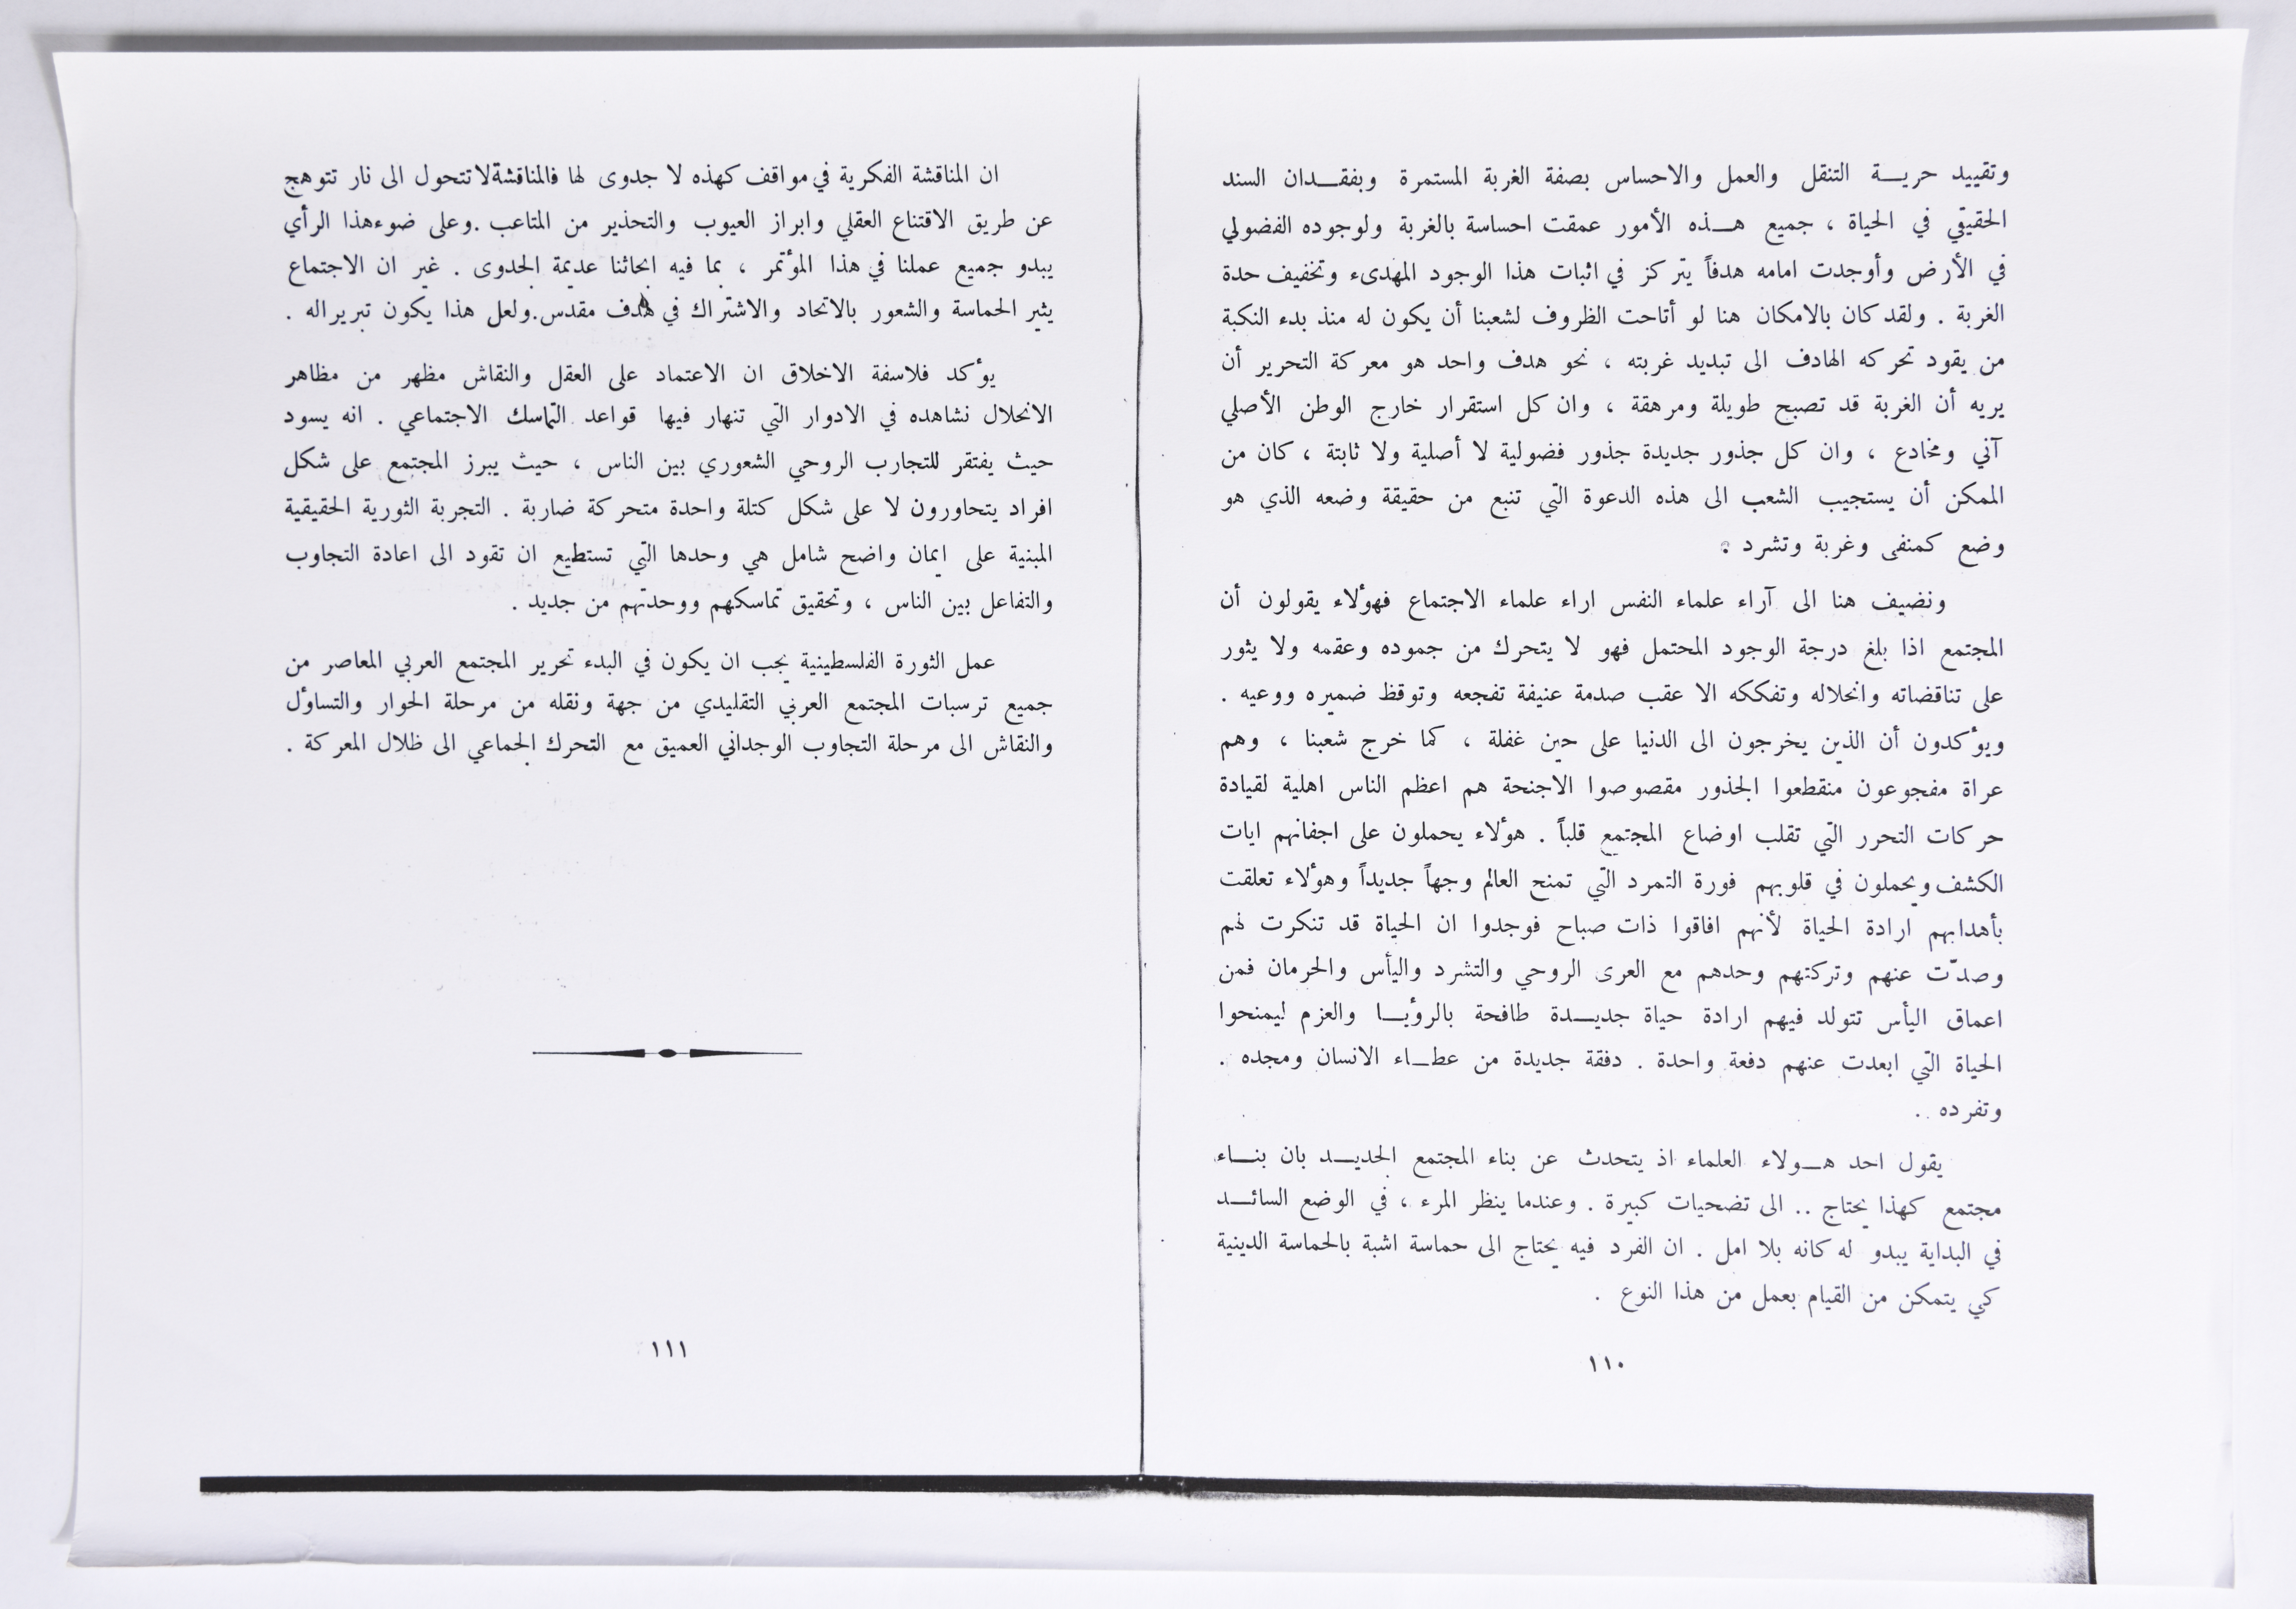 وتقييد حرية التنقل والعمل والاحساس بصفة الغربة المستمرة وبفقدان السند
الحقيقي في الحياة ، جميع هذه الأمور عمقت احساسة بالغربة ولوجوده الفضولي
في الأرض وأوجدت امامه هدفاً يتركز في اثبات هذا الوجود المهدىء وتخفيف حدة
الغربة . ولقد كان بالامكان هنا لو أتاحت الظروف لشعبنا أن يكون له منذ بدء النكبة
من يقود تحركه الهادف الى تبديد غربته ، نحو هدف واحد هو معركة التحرير أن
يريه أن الغربة قد تصبح طويلة ومرهقة ، وان كل استقرار خارج الوطن الأصلي
آني ومخادع ، وان كل جذور جديدة جذور فضولية لا أصلية ولا ثابتة ، كان من
الممكن أن يستجيب الشعب الى هذه الدعوة التي تنبع من حقيقة وضعه الذي هو
وضع كمنفى وغربة وتشرد .
ونضيف هنا الى آراء علماء النفس اراء علماء الاجتماع فهؤلاء يقولون أن
المجتمع اذا بلغ درجة الوجود المحتمل فهو لا يتحرك من جموده وعقمه ولا يثور
على تناقضاته وانحلاله وتفككه الا عقب صدمة عنيفة تفجعه وتوقظ ضميره ووعيه .
ويؤكدون أن الذين يخرجون الى الدنيا على حين غفلة ، كما خرج شعبنا ، وهم
عراة مفجوعون منقطعوا الجذور مقصوصوا الاجنحة هم اعظم الناس اهلية لقيادة
حركات التحرر التي تقلب اوضاع المجتمع قلباً . هؤلاء يحملون على اجفانهم ايات
الكشف ويحملون في قلوبهم فورة التمرد التي تمنح العالم وجهاً جديداً وهؤلاء تعلقت
بأهدابهم ارادة الحياة لأنهم افاقوا ذات صباح فوجدوا ان الحياة قد تنكرت لهم
وصدّت عنهم وتركتهم وحدهم مع العرى الروحي والتشرد واليأس والحرمان فمن
اعماق اليأس تتولد فيهم ارادة حياة جديدة طافحة بالرؤيا والعزم ليمنحوا
الحياة التي ابعدت عنهم دفعة واحدة . دفقة جديدة من عطاء الانسان ومجده .
وتفرده .
يقول احد هولاء العلماء اذ يتحدث عن بناء المجتمع الجديد بان بناء
مجتمع كهذا يحتاج .. الى تضحيات كبيرة . وعندما ينظر المرء ، في الوضع السائد
في البداية يبدو له كانه بلا امل . ان الفرد فيه يحتاج الى حماسة اشبة بالحماسة الدينية
كي يتمكن من القيام بعمل من هذا النوع .
١١٠
ان المناقشة الفكرية في مواقف كهذه لا جدوى لها فالمناقشة لا تتحول الى نار تتوهج
عن طريق الاقتناع العقلي وابراز العيوب والتحذير من المتاعب .وعلى ضوء هذا الرأي
يبدو جميع عملنا في هذا المؤتمر ، بما فيه ابحاثنا عديمة الجدوى . غير ان الاجتماع
يثير الحماسة والشعور بالاتحاد والاشتراك في هدف مقدس.ولعل هذا يكون تبريراله .
يؤكد فلاسفة الاخلاق ان الاعتماد على العقل والنقاش مظهر من مظاهر
الانحلال نشاهده في الادوار التي تنهار فيها قواعد التماسك الاجتماعي . انه يسود
حيث يفتقر للتجارب الروحي الشعوري بين الناس ، حيث يبرز المجتمع على شكل
افراد يتحاورون لا على شكل كتلة واحدة متحركة ضاربة . التجربة الثورية الحقيقية
المبنية على ايمان واضح شامل هي وحدها التي تستطيع ان تقود الى اعادة التجاوب
والتفاعل بين الناس ، وتحقيق تماسكهم ووحدتهم من جديد .
عمل الثورة الفلسطينية يجب ان يكون في البدء تحرير المجتمع العربي المعاصر من
جميع ترسبات المجتمع العربي التقليدي من جهة ونقله من مرحلة الحوار والتساؤل
والنقاش الى مرحلة التجاوب الوجداني العميق مع التحرك الجماعي الى ظلال المعركة .
١١١